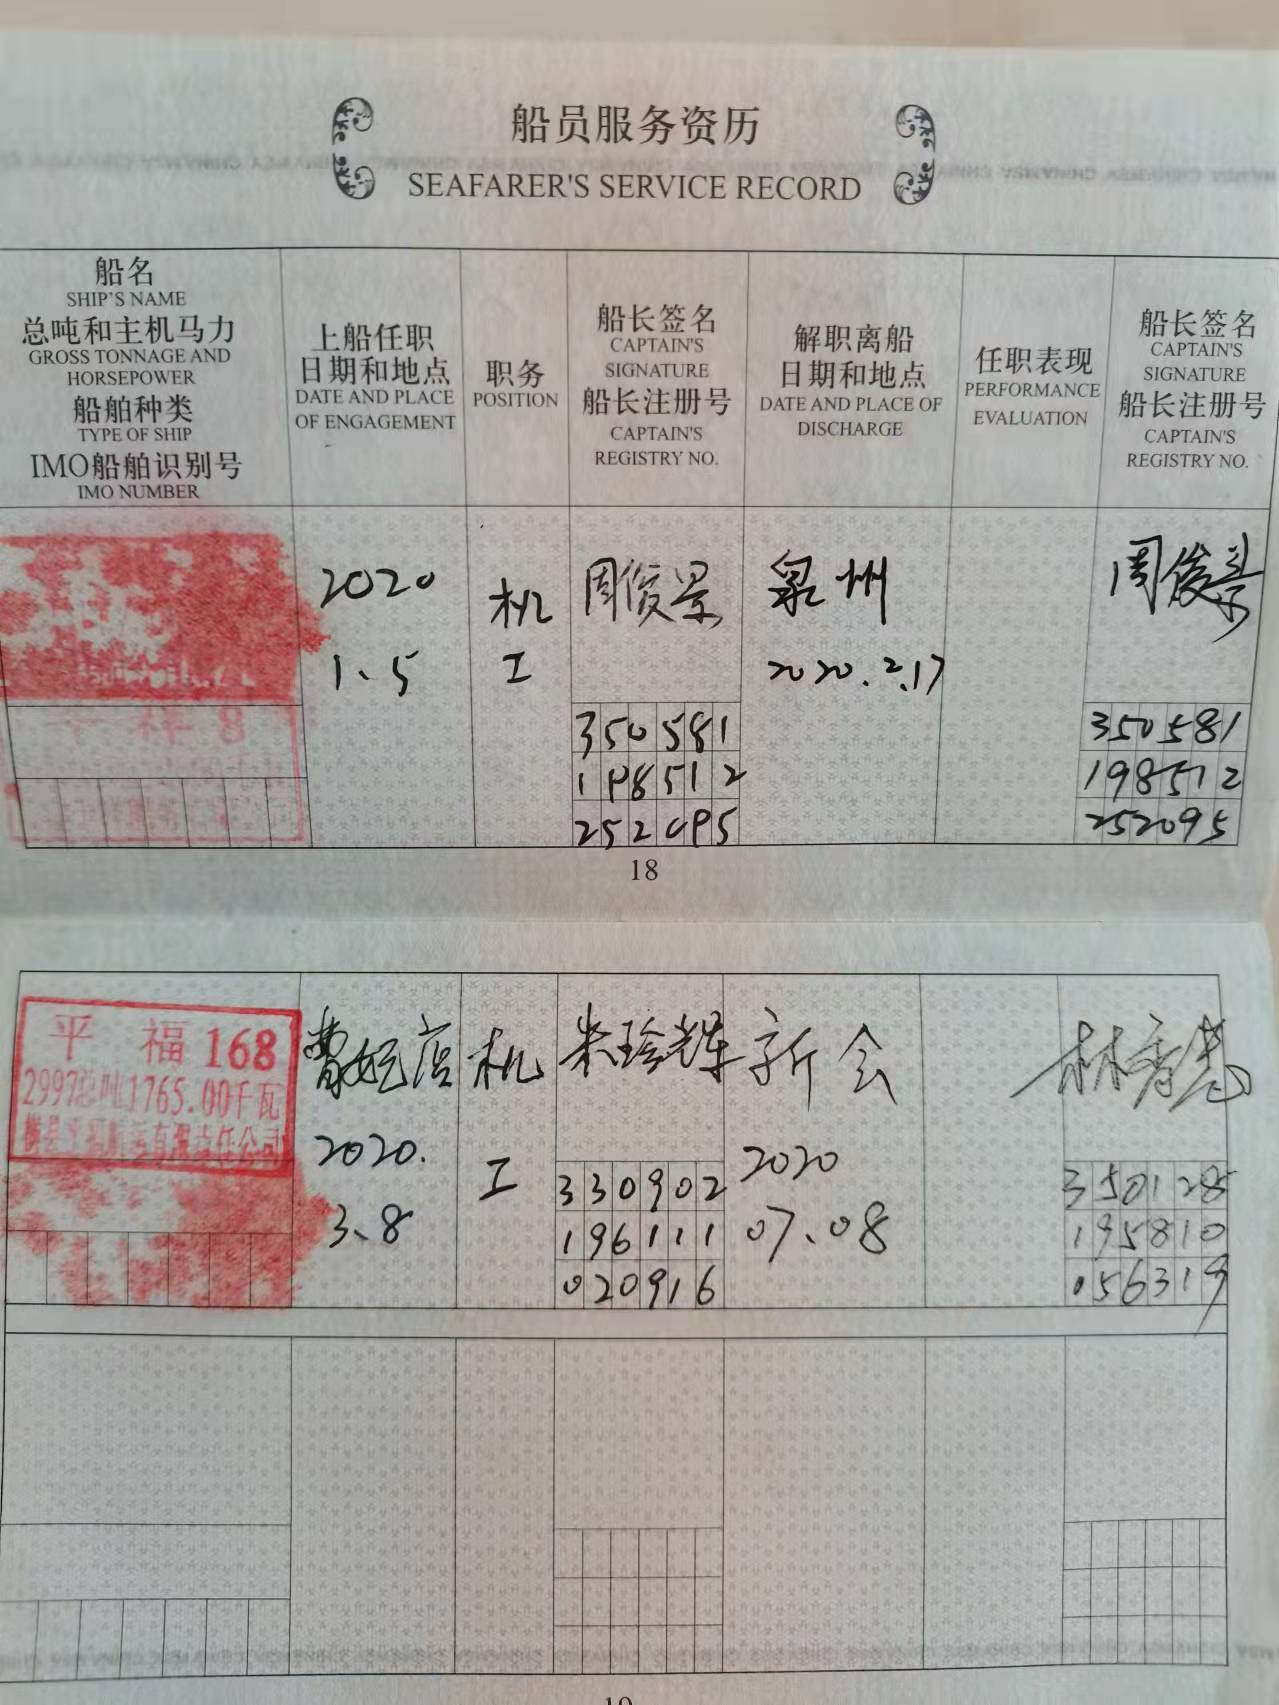 船员服务资历
SEAFARER'S SERVICE RECORD
船名
SHIP'S NAME
总吨和主机马力
GROSS TONNAGE AND
HORSEPOWER
船舶种类
TYPE OF SHIP
IMO船舶识别号
IMO NUMBER
上船任职
日期和地点
DATE AND PLACE
OF ENGAGEMENT
职务
POSITION
船长签名
CAPTAIN'S
SIGNATURE
船长注册号
CAPTAIN'S
REGISTRY NO.
解职离船
日期和地点
DATE AND PLACE OF
DISCHARGE
任职表现
PERFORMANCE
EVALUATION
船长签名
CAPTAIN'S
SIGNATURE
船长注册号
CAPTAIN'S
REGISTRY NO.
2020
1、5
机
工
周俊景
350581
198512
252095
泉州
2020.2.17
周俊景
350581
198512
252095
18
平福168
2997总吨1765.00千瓦
航运有限责任公司
曹妃店
2020.
3、8
机
工
330902
196111
020916
新会
2020
07、08
350128
195810
056319